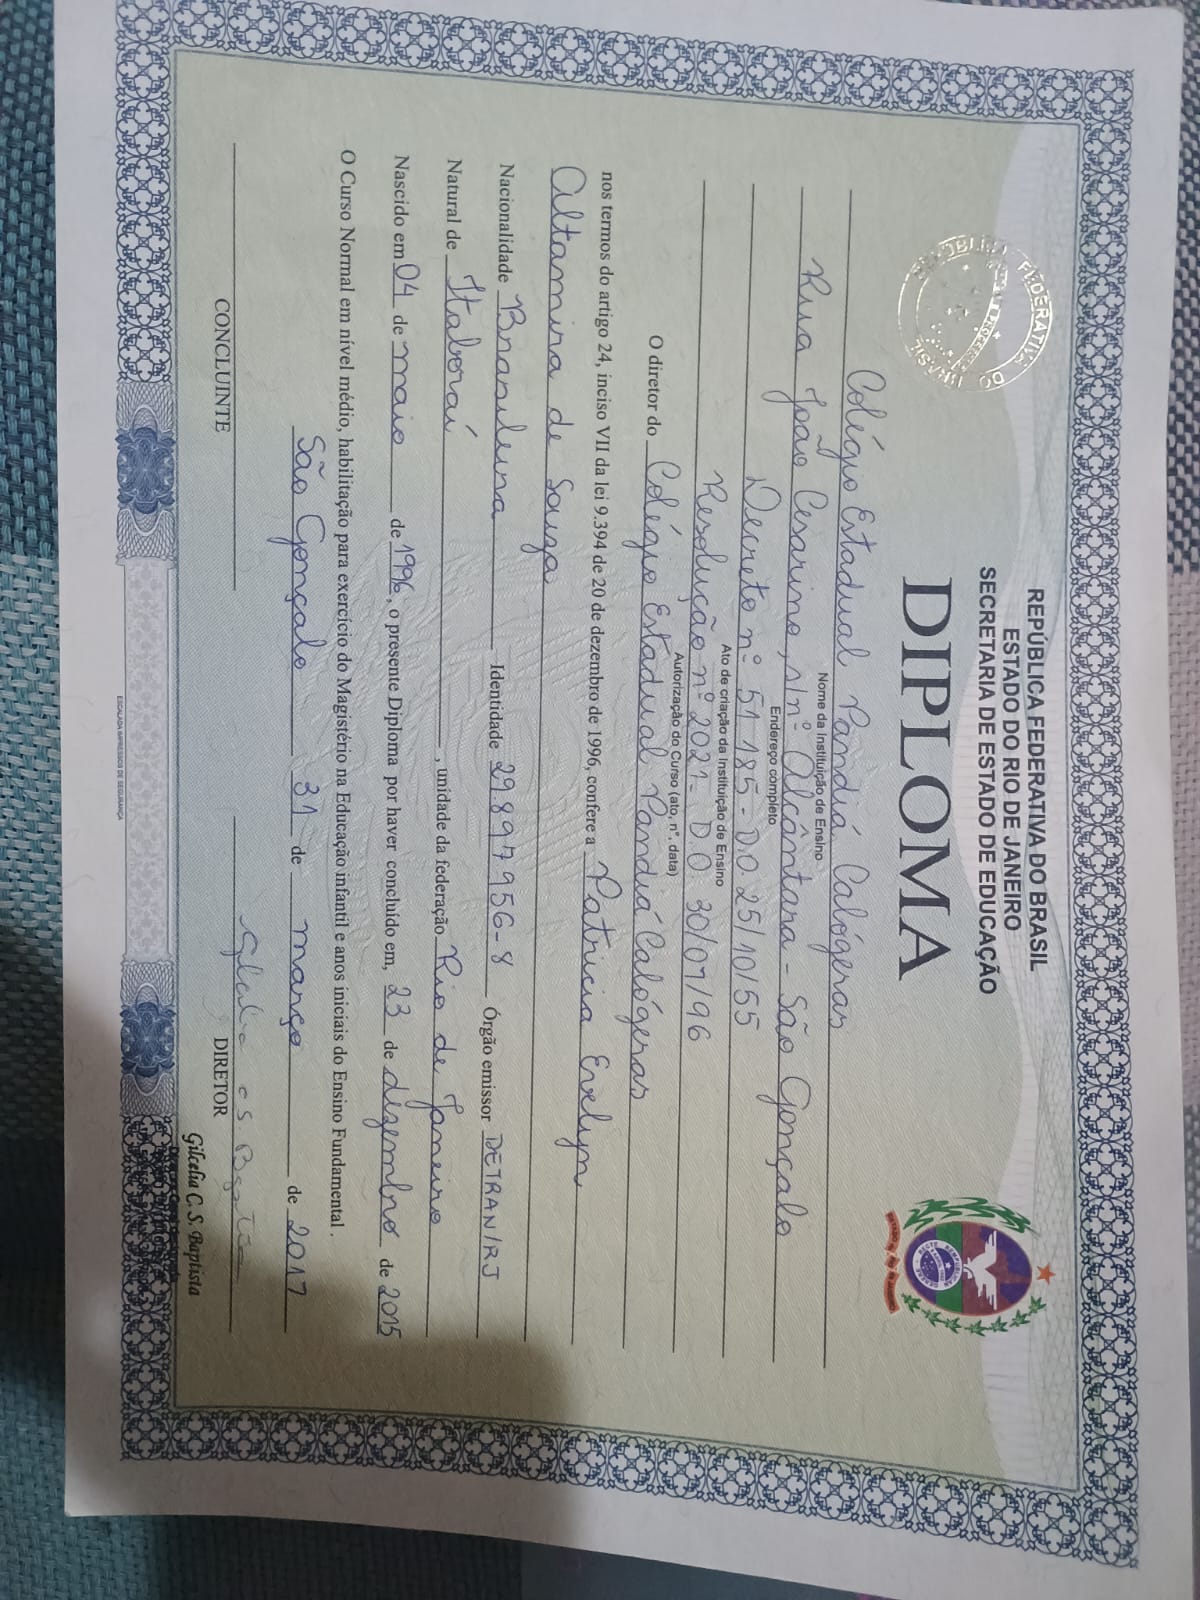 REPÚBLICA FEDERATIVA DO BRASIL
ESTADO DO RIO DE JANEIRO
SECRETARIA DE ESTADO DE EDUCAÇÃO
DIPLOMA
Colégio Estadual Pandiá Calógeras
Nome da Instituição de Ensino
Rua João Cesarino, s/nº Alcântara - São Gonçalo
Endereço completo
Decreto nº 51.185 - D.O 25/10/55
Ato de criação da Instituição de Ensino
Resolução nº 2021 - D.O 30/07/96
Autorização do Curso (ato, nº, data)
O diretor do Colégio Estadual Pandiá Calógeras
nos termos do artigo 24, inciso VII da lei 9.394 de 20 de dezembro de 1996, confere a Patricia Evelyn
Altamira de Souza
Nacionalidade Brasileira Identidade 29.897.956-8 Órgão emissor DETRAN/RJ
Natural de Itaboraí, unidade da federação Rio de Janeiro
Nascido em 04 de maio de 1996, o presente Diploma por haver concluído em, 23 de dezembro de 2015
O Curso Normal em nível médio, habilitação para exercício do Magistério na Educação infantil e anos iniciais do Ensino Fundamental.
São Gonçalo 31 de março de 2017
CONCLUINTE
DIRETOR
Gilcelia C. S. Baptista
ESCALADA IMPRESSOS DE SEGURANÇA